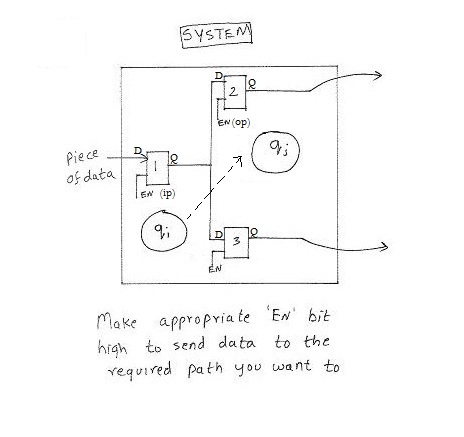 SYSTEM
D Q
2
EN (op)
qj
Piece
of data
D Q
1
EN (ip)
qi
D Q
3
EN
Make appropriate 'EN' bit
high to send data to the
required path you want to